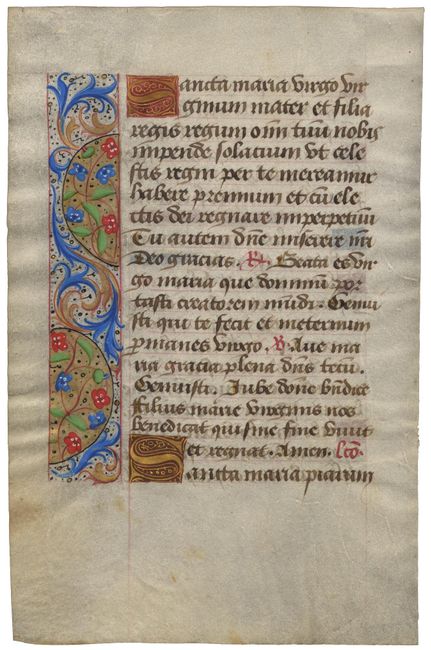 Sancta maria virgo vir
ginum mater et filia
regis regum omium tuū nobis
impende solacium vt cele
stis regni per te mereamur
habere premium et cū ele
ctis dei regnare imperpetuū
Tu autem dñe miserere nr̄i
Deo gracias. R. Beata es vir
go maria que dominū por
tasti creatorem mūdi. Genui
sti qui te fecit et ineternum
p̄manes virgo. V. Aue ma
ria gracia plena dñs tecū.
Genuisti. Iube dōne bn̄dice
ffilius marie virginis nos
benedicat qui sine fine viuit
et regnat. Amen. lc̄o.
Sancta maria piarum